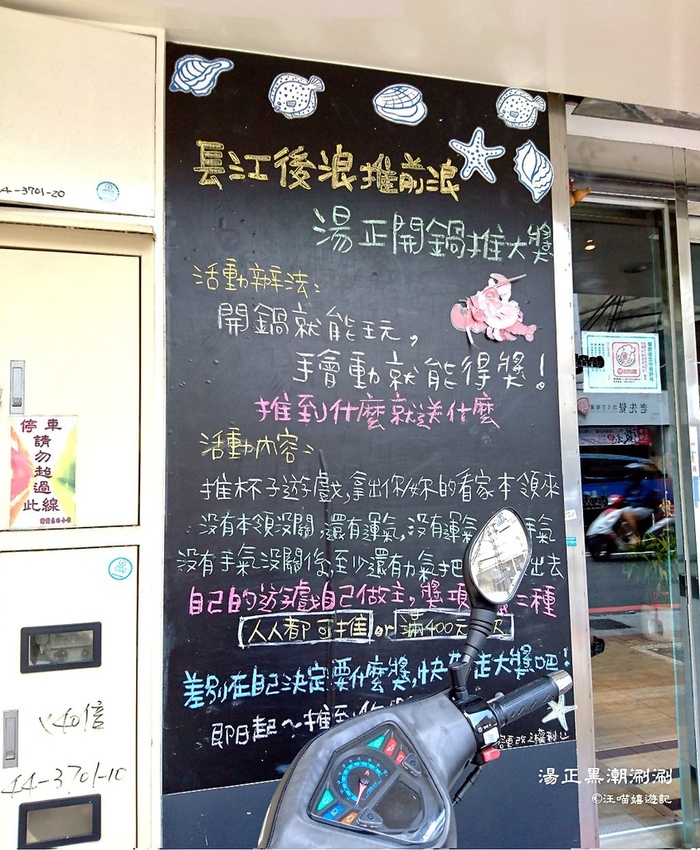 長江後浪推前浪
湯正開鍋推大獎
活動辦法：
開鍋就能玩，
手會動就能得獎！
推到什麼就送什麼
活動內容：
推杯子遊戲，拿出你/妳的看家本領來
沒有本領沒關，還有運氣，沒有運氣 手氣
沒有手氣沒關係，至少還有力氣把 出去
自己的遊戲自己做主，獎項 種
人人都可推 or 滿400元
差別在自己決定要什麼獎，快 走大獎吧！
即日起～推到
更改之權利
44-3701-20
停車
請勿超過此線
X40倍
44-3701-10
湯正黑潮涮涮
©汪喵嬉遊記